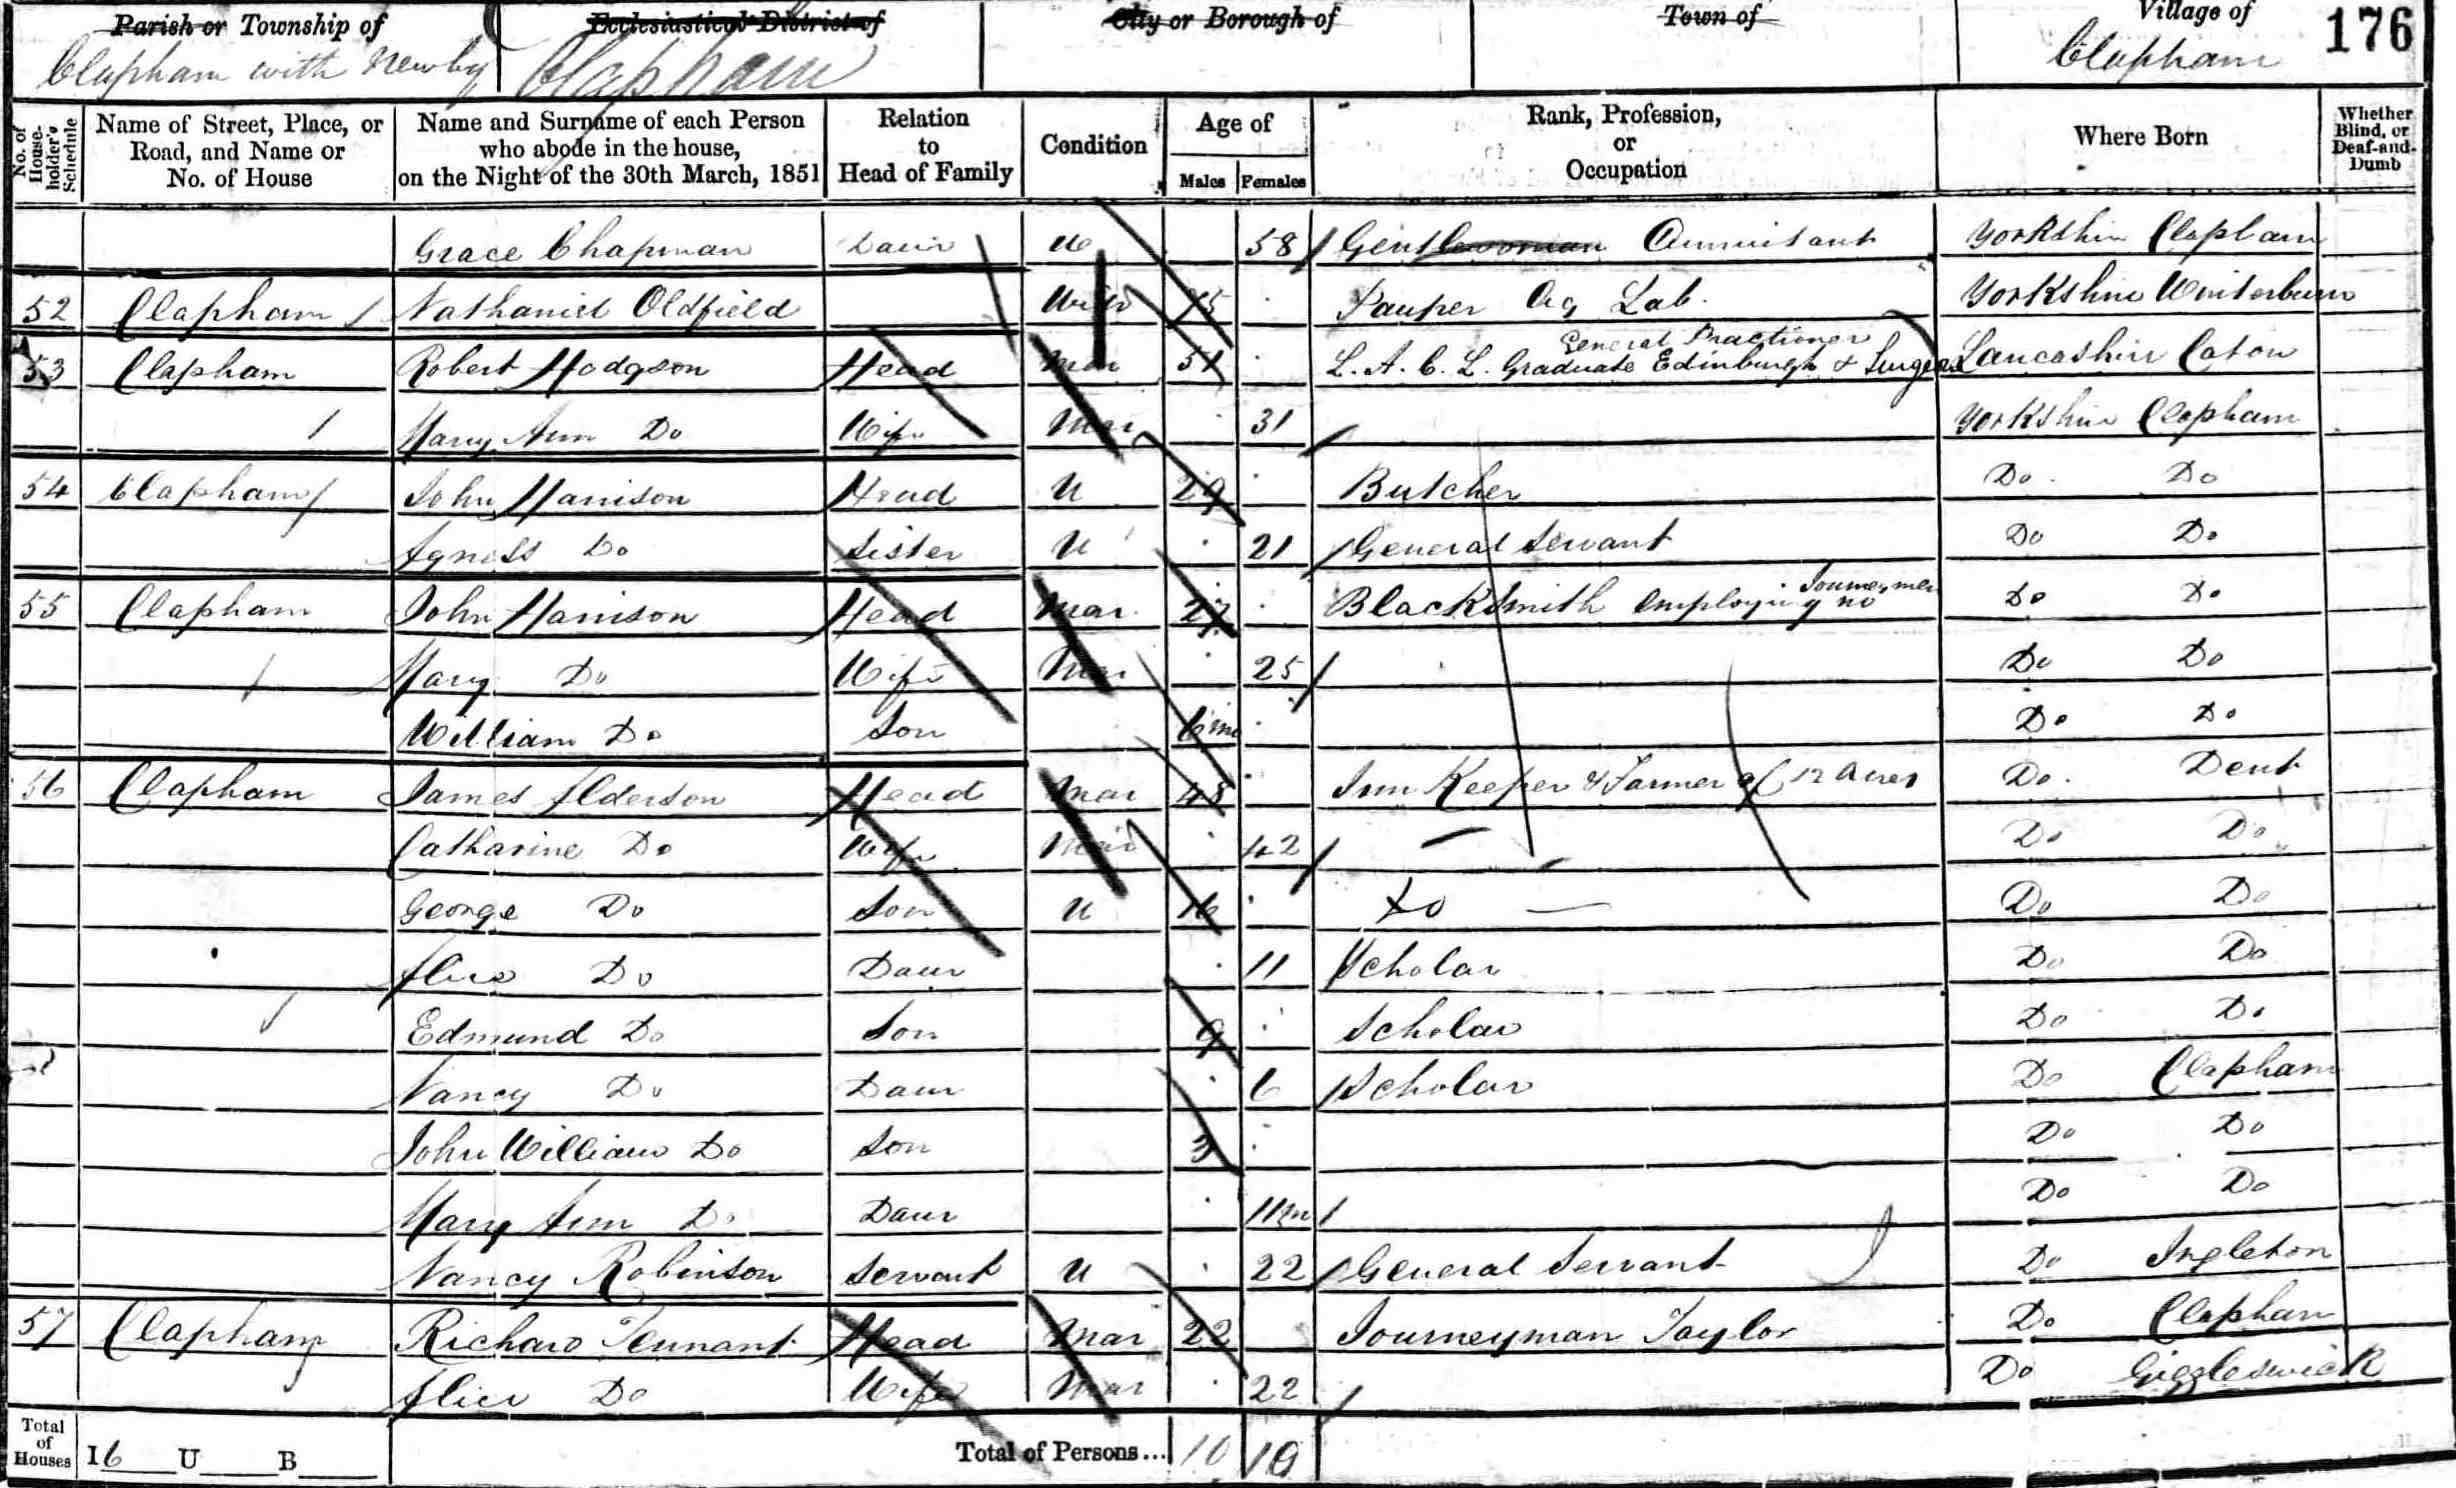 Parish or Township of Ecclesiastical District of City or Borough of Town of Village of 176
Clapham with Newby Clapham Clapham
No. of House-holder's Schedule Name of Street, Place, or Road, and Name or No. of House Name and Surname of each Person who abode in the house, on the Night of the 30th March, 1851 Relation to Head of Family Condition Age of Males Females Rank, Profession, or Occupation Where Born Whether Blind, or Deaf-and-Dumb
Grace Chapman Daur U 58 Gentlewoman Annuitant Yorkshire Clapham
52 Clapham Nathaniel Oldfield Widr 75 Pauper Ag Lab. Yorkshire Winterburn
General Practioner
53 Clapham Robert Hodgson Head Mar 51 L. A. C. L. Graduate Edinburgh & Surgeon Lancashire Caton
Mary Ann Do Wife Mar 31 Yorkshire Clapham
54 Clapham John Harrison Head U 29 Butcher Do Do
Agness Do Sister U 21 General Servant Do Do
55 Clapham John Harrison Head Mar 27 BlackSmith employing no Journeymen Do Do
Mary Do Wife Mar 25 Do Do
William Do Son 6 m Do Do
56 Clapham James Alderson Head Mar 45 Inn Keeper & Farmer of 12 Acres Do Dent
Catharine Do Wife Mar 42 Do Do
George Do Son U 16 Do Do Do
Alice Do Daur 11 Scholar Do Do
Edmund Do Son 9 Scholar Do Do
Nancy Do Daur 6 Scholar Do Clapham
John William Do Son 3 Do Do
Mary Ann Do Daur 11m Do Do
Nancy Robinson Servant U 22 General Servant Do Ingleton
57 Clapham Richard Tennant Head Mar 22 Journeyman Taylor Do Clapham
Alice Do Wife Mar 22 Do Giggleswick
Total of Houses 16 U B Total of Persons... 10 10